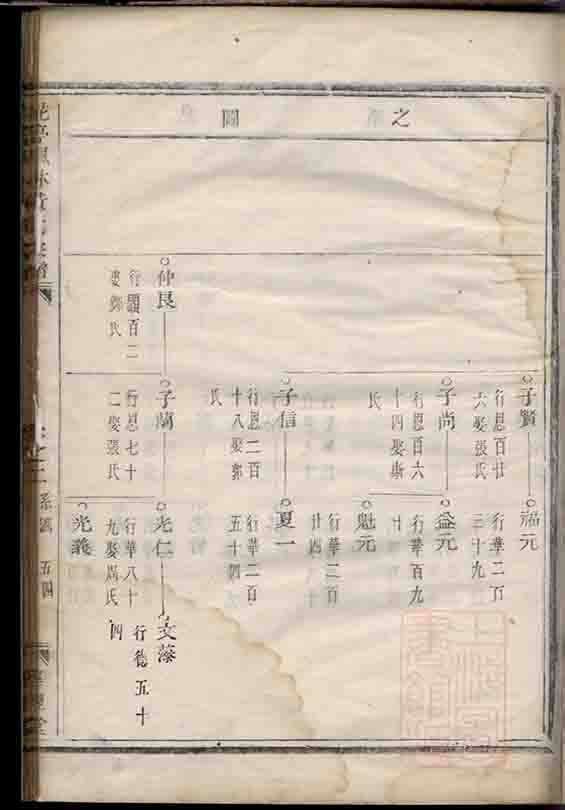 之
圖
子賢
行恩百廿
六娶張氏
福元
行華二百
三十九
子尚
行恩百六
十四娶斯
氏
益元
行華百九
十
魁元
行華二百
廿四
子信
行恩二百
十八娶郭
氏
夏一
行華二百
五十四
仲良
行顯百二
娶鄭氏
子蘭
行恩七十
二娶張氏
光仁
行華八十
九娶周氏
文藻
行德五十
四
光義
系圖
五四